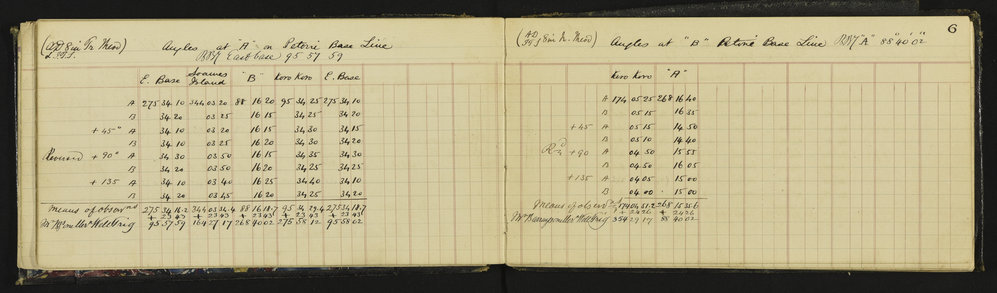 Angles at "A" on Petone Base Line
RM East base 95 57 59
E. Base Soames Island "B" Koro Koro E. Base
A 275 34 10 344 03 20 88 16 20 95 34 25 275 34 10
B 34 20 03 25 16 15 34 25 34 20
+45° A 34 10 03 25 16 15 34 30 34 15
B 34 10 03 25 16 20 34 30 34 20
Reversed +90° A 34 30 03 50 16 15 34 35 34 30
B 34 20 03 50 16 20 34 25 34 20
+135 A 34 10 03 40 16 25 34 40 34 10
B 34 20 03 45 16 20 34 25 34 20
Means of observns 275 34 16.2 88 16 18.7 95 34 29.4 275 34 18.7
+ 23 43 + 23 43 + 23 43 + 23 43 + 23 43
95 57 59 164 27 17 268 40 02 275 58 12 95 58 02
6
Angles at "B" Petone Base Line RM "A" 88° 40' 02"
Koro Koro "A"
A 174 05 25 268 16 40
B 05 15 16 35
+45 A 05 15 14 50
B 05 10 14 40
+90 A 04 50 15 55
B 04 50 16 05
+135 A 04 05 15 00
B 04 00 15 00
Means of observns 174 04 51.2 268 15 35.6
+ 24 26 + 24 26
354 29 17 88 40 02